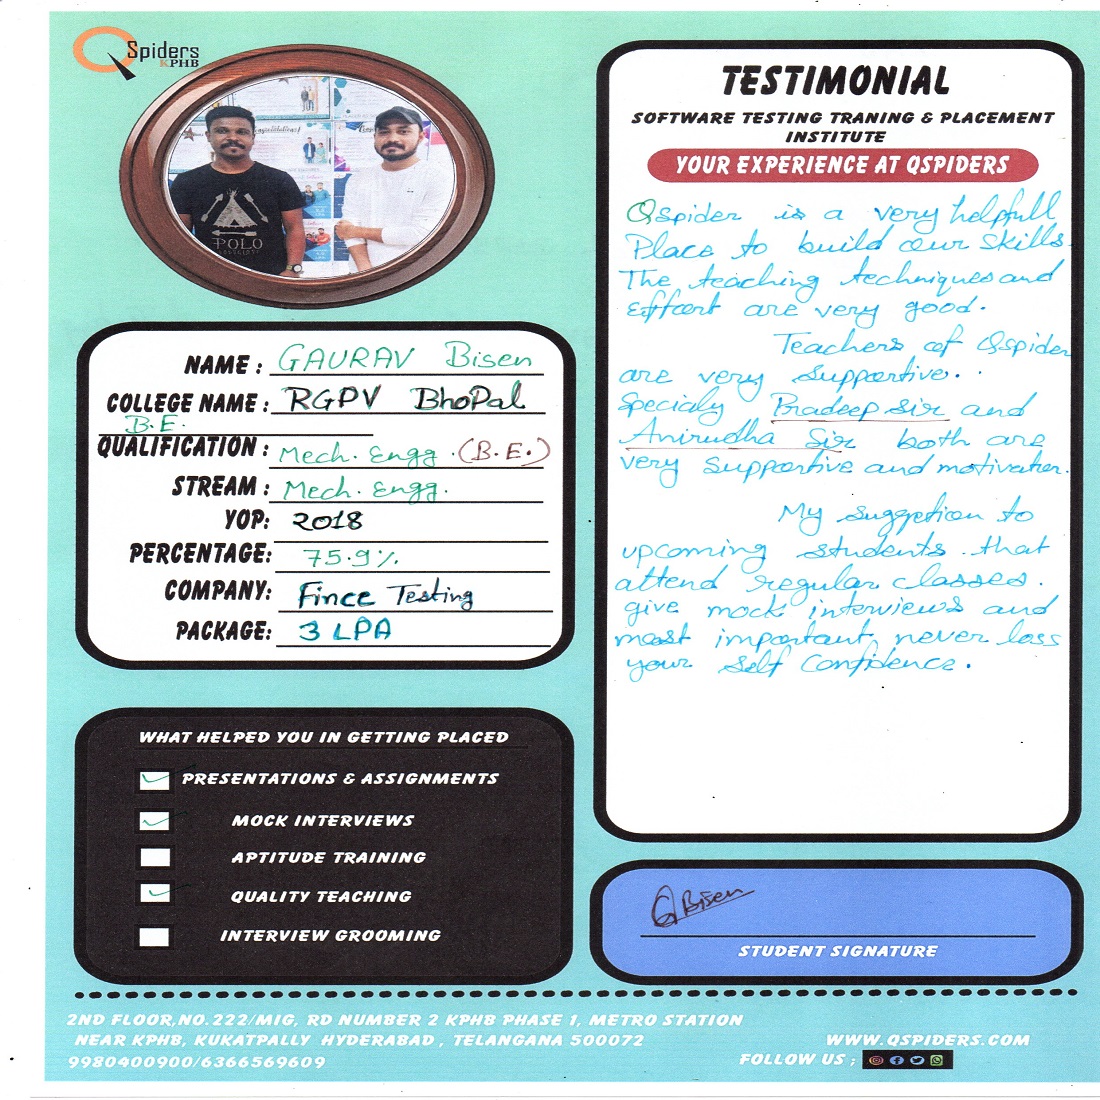 QSpiders
KPHB
Congratulations!
POLO
NAME : GAURAV Bisen
COLLEGE NAME : RGPV BhoPal
B.E.
QUALIFICATION : Mech. Engg. (B.E.)
STREAM : Mech. Engg.
YOP: 2018
PERCENTAGE: 75.9%
COMPANY: Fince Testing
PACKAGE: 3 LPA
WHAT HELPED YOU IN GETTING PLACED
PRESENTATIONS & ASSIGNMENTS
MOCK INTERVIEWS
APTITUDE TRAINING
QUALITY TEACHING
INTERVIEW GROOMING
TESTIMONIAL
SOFTWARE TESTING TRANING & PLACEMENT
INSTITUTE
YOUR EXPERIENCE AT QSPIDERS
QSpider is a very helpfull
Place to build our skills.
The teaching techniques and
Effort are very good.
Teachers of Qspider
are very supportive.
Specialy Pradeep sir and
Anirudha Sir both are
very supportive and motivation.
My suggetion to
upcoming students that
attend regular classes.
give mock interviews and
most important, never loss
your self Confidence.
GBisen
STUDENT SIGNATURE
2ND FLOOR,NO.222/MIG, RD NUMBER 2 KPHB PHASE 1, METRO STATION
NEAR KPHB, KUKATPALLY HYDERABAD, TELANGANA 500072
9980400900/6366569609
WWW.QSPIDERS.COM
FOLLOW US ;